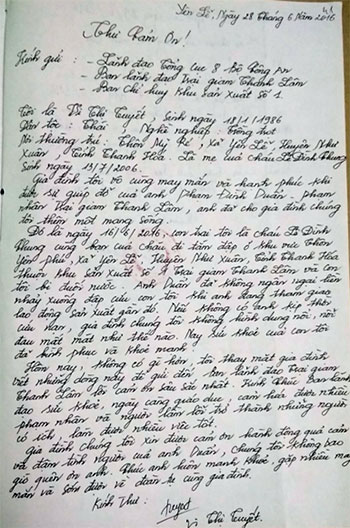 Yên Lễ, Ngày 28 Tháng 6 Năm 2016
Thư Cảm Ơn!
Kính gửi: - Lãnh đạo Tổng cục 8 Bộ Công An
- Ban lãnh đạo Trại giam Thanh Lâm
- Ban chỉ huy Khu sản xuất số 1.
Tôi là Vi Thị Tuyết, Sinh ngày 18/11/1986
Dân tộc: Thái, Nghề nghiệp: Trồng trọt
Nơi thường trú: Thôn Mỹ Ré, xã Yên Lễ, Huyện Như
Xuân Tỉnh Thanh Hóa. Là mẹ của cháu Lê Đình Phung
Sinh ngày 13/7/2006.
Gia đình tôi vô cùng may mắn và hạnh phúc khi
được sự giúp đỡ của anh Phạm Đình Duẩn. Phạm
nhân Trại giam Thanh Lâm, anh đã cho gia đình chúng
tôi thêm một mạng sống.
Đó là ngày 16/6/2016, con trai tôi là cháu Lê Đình
Phung cùng bạn của cháu đi tắm đập ở khu vực Thôn
Yên Phú, xã Yên Lễ, Huyện Như Xuân, Tỉnh Thanh Hóa
thuộc khu sản xuất số 1 Trại giam Thanh Lâm và con
tôi bị đuối nước. Anh Duẩn đã không ngần ngại liền
nhảy xuống đập cứu con tôi khi anh đang tham gia
lao động sản xuất gần đó. Nếu không có anh kịp thời
cứu nạn, gia đình chúng tôi không hình dung nổi, nỗi
đau mất mát như thế nào. Nay sức khỏe của con tôi
đã bình phục và khỏe mạnh.
Hôm nay, không có gì hơn, tôi thay mặt gia đình
viết những dòng này để gửi đến ban lãnh đạo Trại giam
Thanh Lâm lời cảm ơn sâu sắc nhất. Kính chúc ban lãnh
đạo sức khỏe, ngày càng giáo dục, cảm hóa được nhiều
phạm nhân và người lầm lỗi trở thành những người
có ích, làm được nhiều việc tốt.
Gia đình chúng tôi xin được cảm ơn hành động quả cảm
và đầm tình người của anh Duẩn, chúng tôi không bao
giờ quên ơn anh. Chúc anh luôn mạnh khỏe, gặp nhiều may
mắn và sớm được về đoàn tụ cùng gia đình.
Kính Thư:
Tuyết
Vi Thị Tuyết.